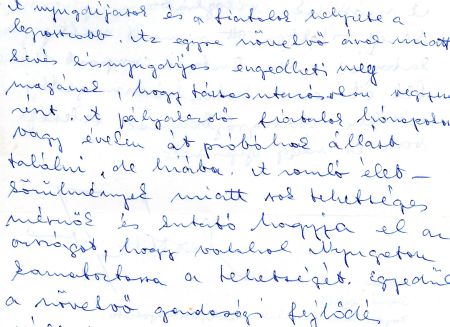 A nyugdíjasok és a fiatalok helyzete a
legrosszabb. Az egyre növelvő árak miatt
kevés kisnyugdíjas engedheti meg
magának, hogy társasutazásokon vegyen
részt. A pályakezdő fiatalok hónapokon
vagy éveken át próbálnak állást
találni, de hiába. A romló élet-
körülmények miatt sok tehetséges
mérnök és kutató hagyja el az
országot, hogy valahol Nyugaton
kamatoztassa a tehetségét. Egyedül
a növelvő gazdasági fejlődés